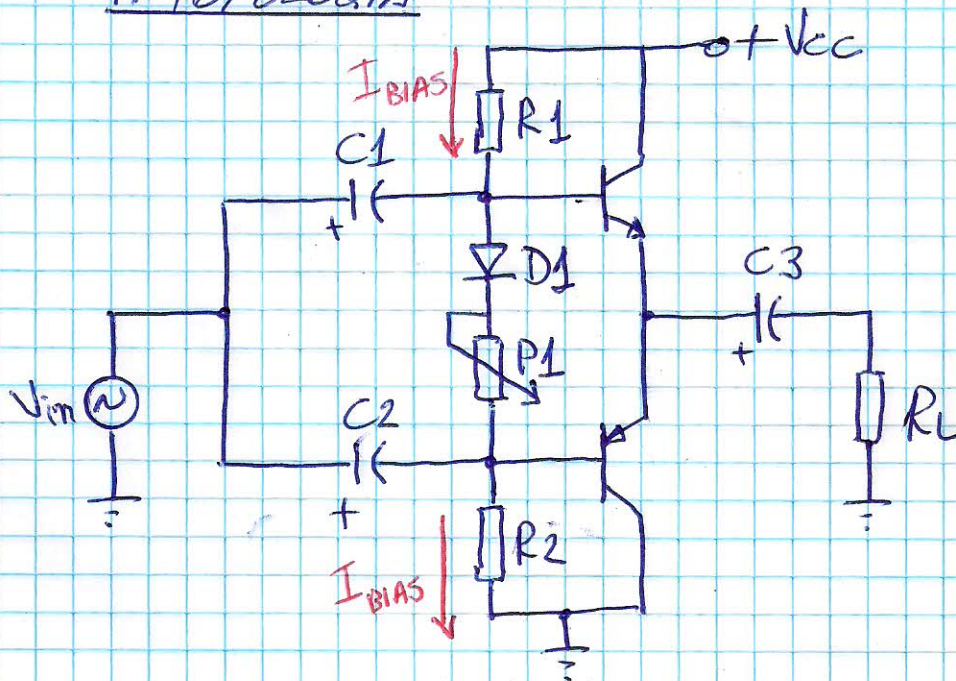 +Vcc
I BIAS
R1
C1
+
D1
C3
+
P1
Vin
C2
+
RL
R2
I BIAS